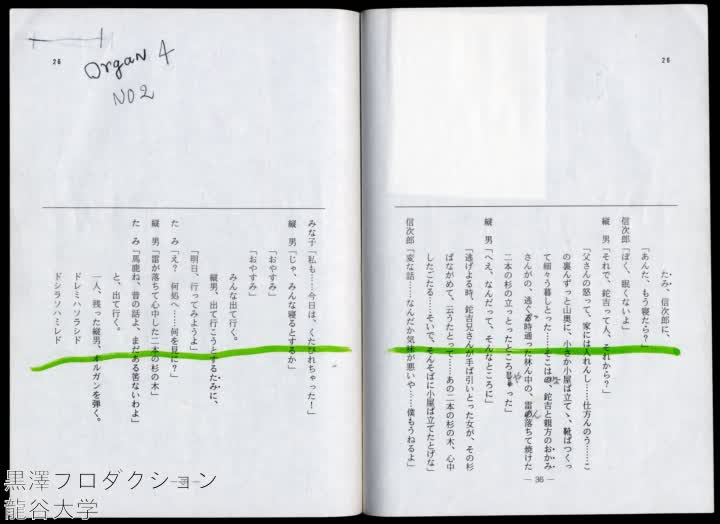 26
たみ、信次郎に、
「あんた、もう寝たら？」
信次郎「ぼく、眠くないよ」
縦男「それで、鉈吉って人、それから？」
「父さんの怒って、家には入れんし……仕方んのう……こ
の裏んずっと山奥に、小さか小屋ば立てゝ、靴ばつくっ
て細々う暮しとった……そこはの、鉈吉と親方のおかみ
さんがの、逃ぐる時通った林ん中の、雷の落ちて焼けた
二本の杉の立っとったところ
った」
縦男「へえ、なんだって、そんなところに」
「逃げよる時、鉈吉兄さんが手ば引いとった女が、その杉
ばながめて、云うたとって……あの二本の杉の木、心中
したごたる……そいで、そんそばに小屋ば立てたとげな」
信次郎「変な話……なんだか気味が悪いや……僕もうねるよ」
— 36 —
26
Organ 4
NO2
みな子「私も……今日は、くたびれちゃった！」
縦男「じゃ、みんな寝るとするか」
「おやすみ」
「おやすみ」
みんな出て行く。
縦男、出て行こうとするたみに、
「明日、行ってみようよ」
たみ「え？ 何処へ……何を見に？」
縦男「雷が落ちて心中した二本の杉の木」
たみ「馬鹿ね、昔の話よ、まだある筈ないわよ」
と、出て行く。
一人、残った縦男、オルガンを弾く。
ドレミハソラシド
ドシラソハミレド
黒澤プロダクション
龍谷大学